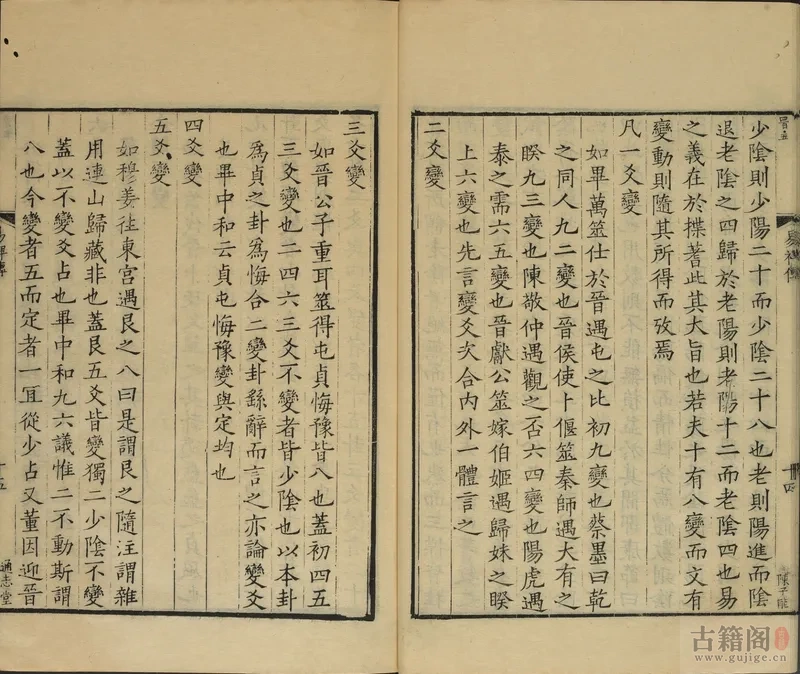 少陰則少陽二十而少陰二十八也老則陽進而陰
退老陰之四歸於老陽則老陽十二而老陰四也易
之義在於揲蓍此其大旨也若夫十有八變而文有
變動則隨其所得而攷焉
凡一爻變
如畢萬筮仕於晉遇屯之比初九變也蔡墨曰乾
之同人九二變也晉侯使卜偃筮秦師遇大有之
睽九三變也陳敬仲遇觀之否六四變也陽虎遇
泰之需六五變也晉獻公筮嫁伯姬遇歸妹之睽
上六變也先言變爻次合內外一體言之
二爻變
十四
三爻變
如晉公子重耳筮得屯貞悔豫皆八也蓋初四五
三爻變也二四六三爻不變者皆少陰也以本卦
為貞之卦為悔合二變卦繇辭而言之亦論變爻
也畢中和云貞屯悔豫變與定均也
四爻變
五爻變
如穆姜往東宮遇艮之八曰是謂艮之隨注謂雜
用連山歸藏非也蓋艮五爻皆變獨二少陰不變
蓋以不變爻占也畢中和九六議惟二不動斯謂
八也今變者五而定者一宜從少占又董因迎晉
十五
通志堂
古籍阁
www.gujige.cn